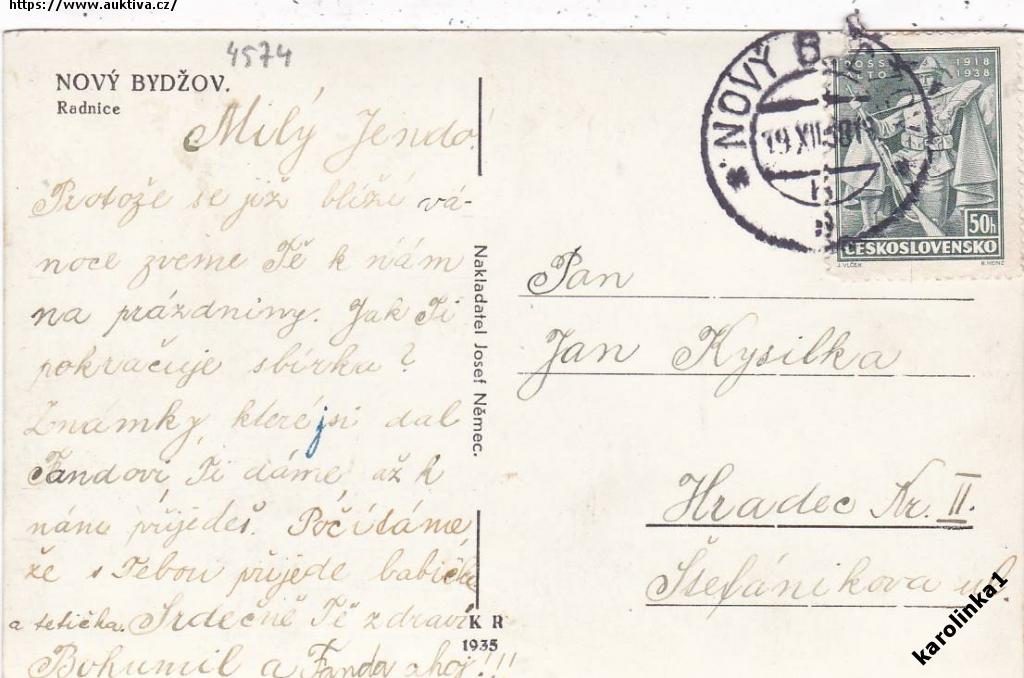 https://www.auktiva.cz/
4574
NOVÝ BYDŽOV.
Radnice
Milý Jendo!
Protože se již blíží vá-
noce zveme Tě k nám
na prázdniny. Jak Ti
pokračuje sbírka?
Známky které jsi dal
Fandovi Ti dáme až k
nám přijedeš. Počítáme,
že s Tebou přijede babička
a tetička. Srdečně Tě zdraví
Bohumil a Fanda ahoj!!!
Nakladatel Josef Němec.
K R
1935
NOVÝ B
19 XII 38
DOSS ALTO
1918
1938
50h
ČESKOSLOVENSKO
J. VLČEK
B. HEINZ
Pan
Jan Kysilka
Hradec Kr. II.
Štefánikova ul.
karolinka1